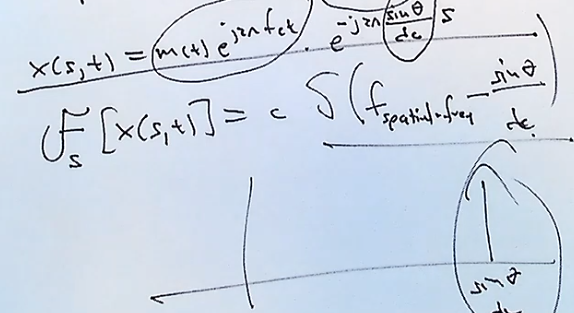 x(s,t) = m(t) e^{j2π f_c t} · e^{-j2π \frac{sin θ}{dc} s}
F_s [x(s,t)] = c δ(f_{spatial-freq} - \frac{sin θ}{dc})
sin θ
dc